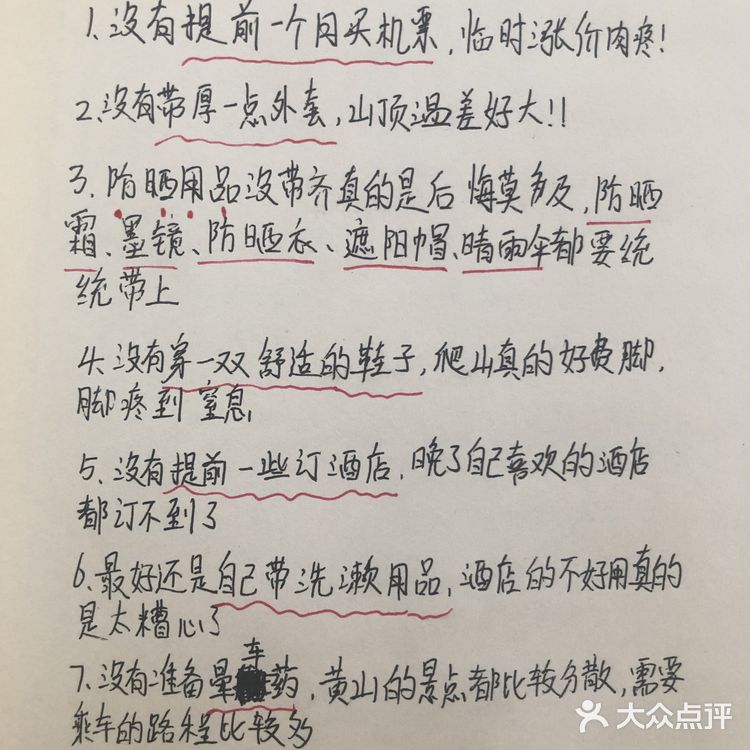 1、没有提前一个月买机票,临时涨价肉疼!
2、没有带厚一点外套,山顶温差好大!!
3、防晒用品没带齐真的是后悔莫多及,防晒
霜、墨镜、防晒衣、遮阳帽、晴雨伞都要统
统带上
4、没有穿一双舒适的鞋子,爬山真的好费脚,
脚疼到窒息,
5、没有提前一些订酒店,晚了自己喜欢的酒店
都订不到了
6、最好还是自己带洗漱用品,酒店的不好用真的
是太糟心了
7、没有准备晕车药,黄山的景点都比较分散,需要
乘车的路程比较多
大众点评